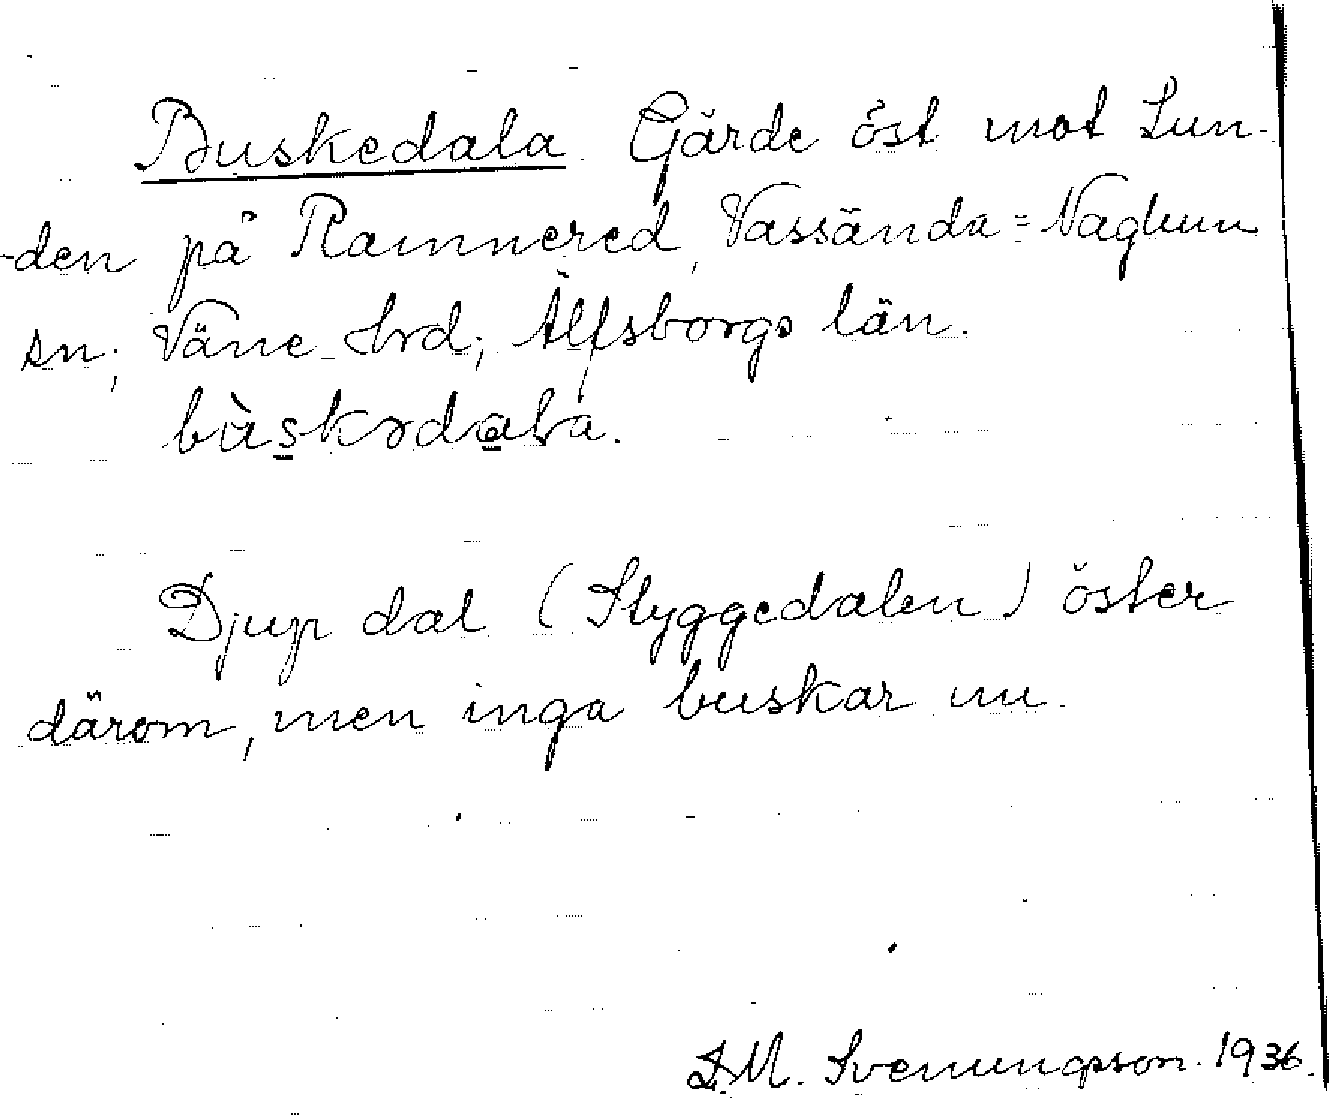 Buskedala. Gärde öst mot Lun-
den på Rannered, Vassända-Naglum
sn, Väne hrd, Älfsborgs län.
bùskədaɫa.
Djup dal (Styggedalen) öster
därom, men inga buskar nu.
J.M. Svenungsson. 1936.